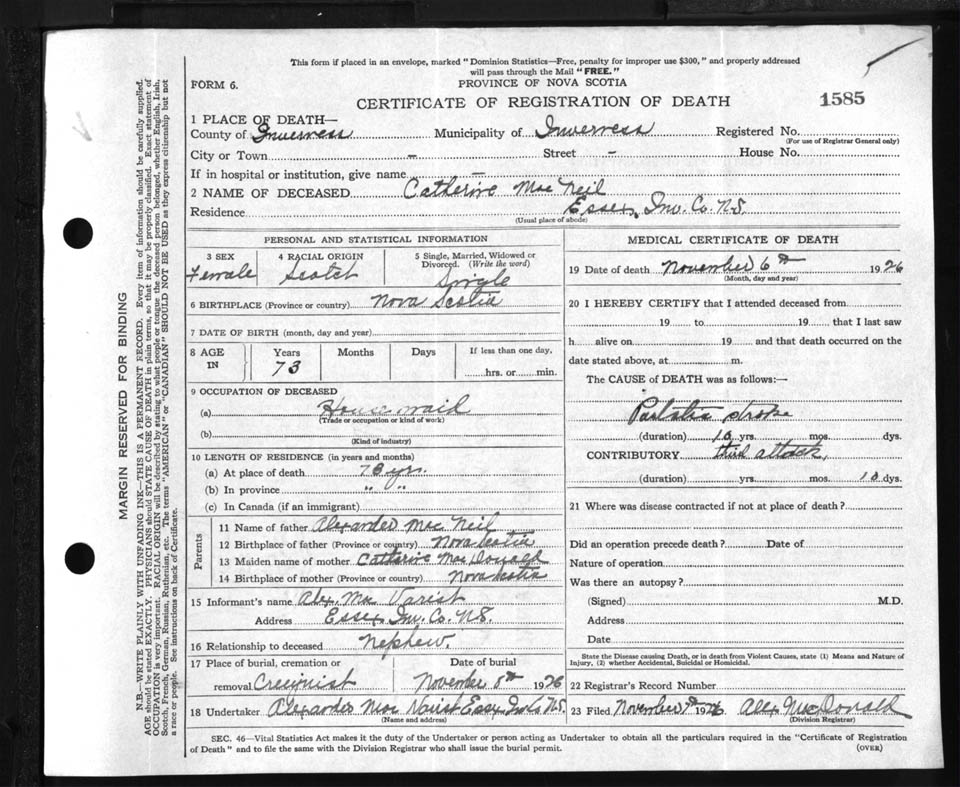 This form if placed in an envelope, marked "Dominion Statistics—Free, penalty for improper use $300," and properly addressed
will pass through the Mail "FREE."
FORM 6.
PROVINCE OF NOVA SCOTIA
CERTIFICATE OF REGISTRATION OF DEATH
1585
1 PLACE OF DEATH—
County of Inverness Municipality of Inverness Registered No.
(For use of Registrar General only)
City or Town — Street — House No.
If in hospital or institution, give name —
2 NAME OF DECEASED Catherine Mac Neil
Residence Essex, Inv. Co. N.S.
(Usual place of abode)
PERSONAL AND STATISTICAL INFORMATION
3 SEX 4 RACIAL ORIGIN 5 Single, Married, Widowed or
Divorced. (Write the word)
Female Scotch Single
6 BIRTHPLACE (Province or country) Nova Scotia
7 DATE OF BIRTH (month, day and year)
8 AGE IN Years Months Days If less than one day,
73 hrs. or min.
9 OCCUPATION OF DECEASED
(a) House maid
(Trade or occupation or kind of work)
(b)
(Kind of industry)
10 LENGTH OF RESIDENCE (in years and months)
(a) At place of death 73 yrs.
(b) In province " "
(c) In Canada (if an immigrant)
Parents
11 Name of father Alexander Mac Neil
12 Birthplace of father (Province or country) Nova Scotia
13 Maiden name of mother Catherine Mac Donald
14 Birthplace of mother (Province or country) Nova Scotia
15 Informant's name Alex. Mac Varist
Address Essex Inv. Co. N.S.
16 Relationship to deceased Nephew.
17 Place of burial, cremation or Date of burial
removal Creignist November 8th 1926
18 Undertaker Alexander Mac Varist Essex Inv. Co. N.S.
(Name and address)
MEDICAL CERTIFICATE OF DEATH
19 Date of death November 6th 1926
(Month, day and year)
20 I HEREBY CERTIFY that I attended deceased from
19 to 19 that I last saw
h alive on 19 and that death occurred on the
date stated above, at m.
The CAUSE of DEATH was as follows:—
stroke
(duration) 10 yrs. mos. dys.
CONTRIBUTORY third attack,
(duration) yrs. mos. 10 dys.
21 Where was disease contracted if not at place of death?
Did an operation precede death? Date of
Nature of operation
Was there an autopsy?
(Signed) M.D.
Address
Date
State the Disease causing Death, or in death from Violent Causes, state (1) Means and Nature of
Injury, (2) whether Accidental, Suicidal or Homicidal.
22 Registrar's Record Number
23 Filed November 1926 Alex MacDonald
(Division Registrar)
SEC. 46—Vital Statistics Act makes it the duty of the Undertaker or person acting as Undertaker to obtain all the particulars required in the "Certificate of Registration
of Death" and to file the same with the Division Registrar who shall issue the burial permit.
(OVER)
MARGIN RESERVED FOR BINDING
N.B.—WRITE PLAINLY WITH UNFADING INK—THIS IS A PERMANENT RECORD. Every item of information should be carefully supplied.
AGE should be stated EXACTLY. PHYSICIANS should STATE CAUSE OF DEATH in plain terms, so that it may be properly classified. Exact statement of
OCCUPATION is very important. RACIAL ORIGIN will be described by stating to what people or tongue the deceased person belonged, whether English, Irish,
Scotch, French, German, Russian, Ruthenian, etc. The terms "AMERICAN" or "CANADIAN" SHOULD NOT BE USED as they express citizenship but not
a race or people. See instructions on back of Certificate.